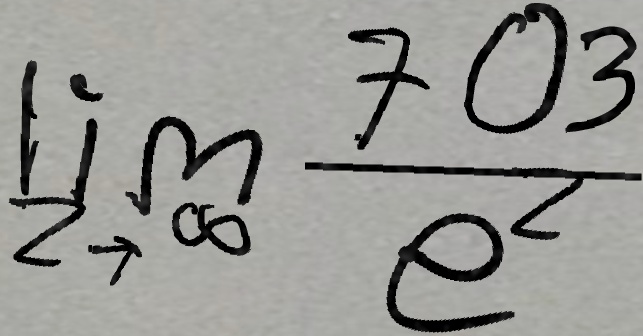 \lim_{z \to \infty} \frac{703}{e^z}